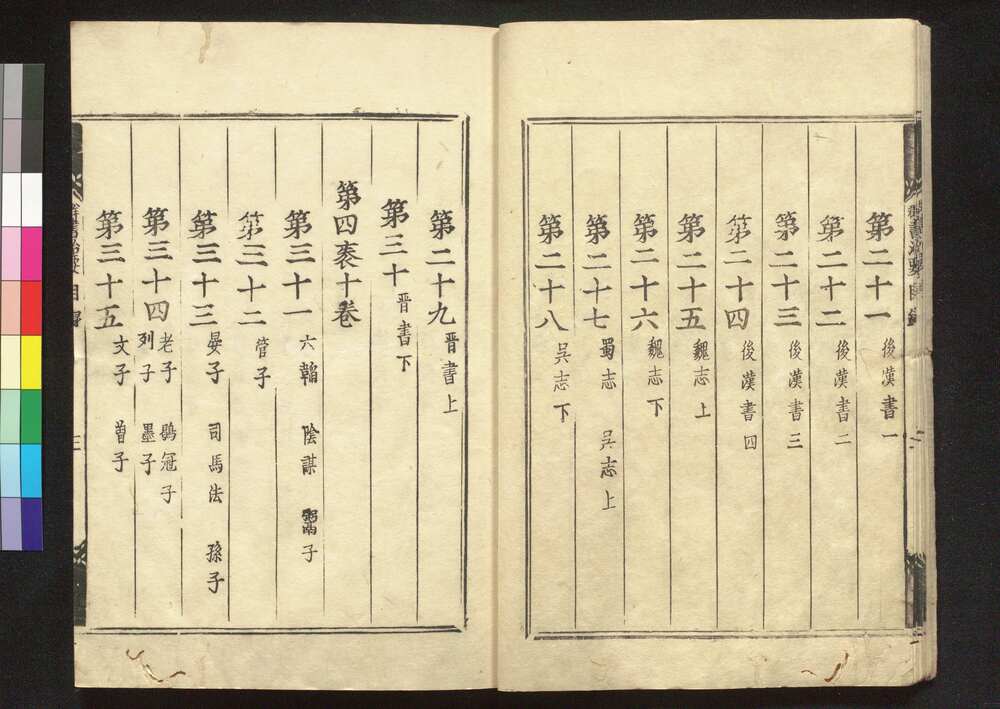 第二十一 後漢書一
第二十二 後漢書二
第二十三 後漢書三
第二十四 後漢書四
第二十五 魏志上
第二十六 魏志下
第二十七 蜀志 吳志上
第二十八 吳志下
第二十九 晋書上
第三十 晋書下
第四袠十卷
第三十一 六韜 陰謀 鬻子
第三十二 管子
第三十三 晏子 司馬法 孫子
第三十四 老子 鶡冠子
列子 墨子
第三十五 文子 曽子
群書治要目録
三